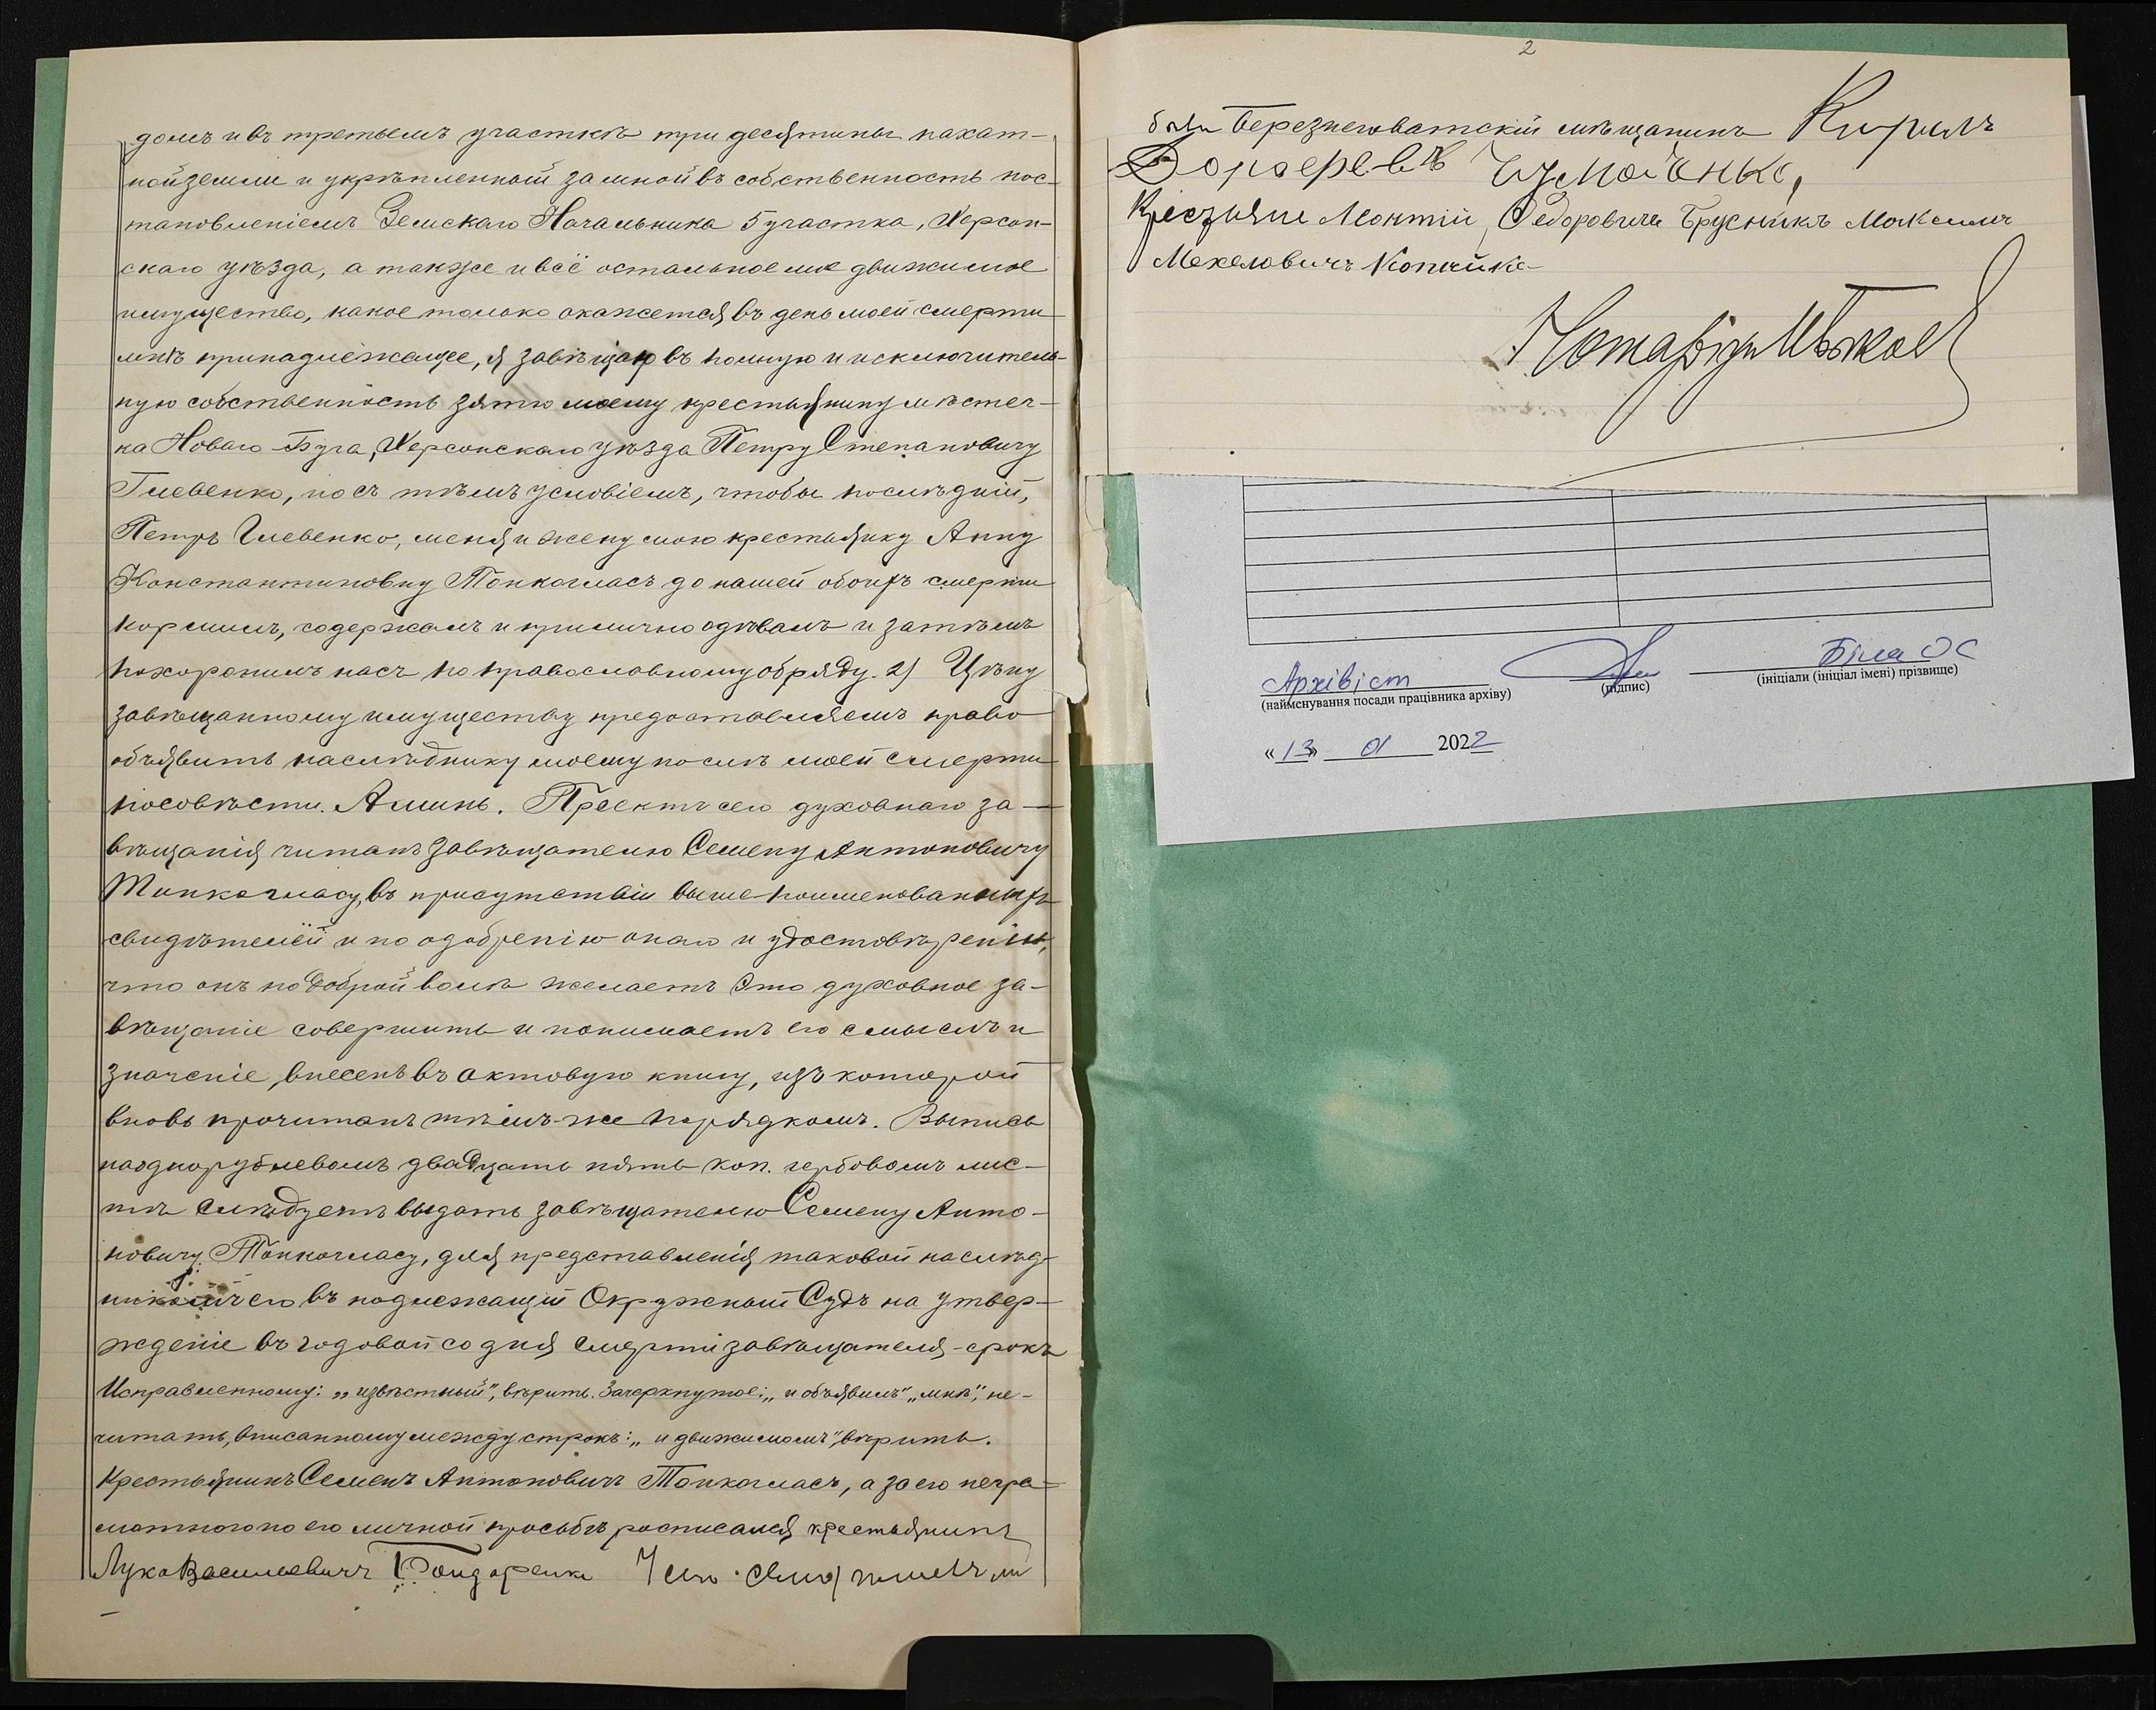 домъ и въ третьемъ участкѣ три десятины пахат-
ной земли и укрѣпленный за мной въ собственность пос-
тановленіемъ Земскаго Начальника 5 участка, Херсон-
скаго уѣзда, а также и всё остальное мое движимое
имущество, какое только окажется въ день моей смерти
мнѣ принадлежащее, я завѣщаю въ полную и исключитель-
ную собственность зятю моему крестьянину мѣстеч-
ка Новаго-Буга, Херсонскаго уѣзда Петру Степановичу
Глевенко, но съ тѣмъ условіемъ, чтобы послѣдній,
Петръ Глевенко, меня и жену мою крестьянку Анну
Константиновну Тонкогласъ до нашей обоихъ смерти
кормилъ, содержалъ и прилично одѣвалъ и затѣмъ
похоронилъ насъ по православному обряду. 2) Цѣну
завѣщанному имуществу предоставляемъ право
объявить наслѣднику моему послѣ моей смерти
по совѣсти. Аминь. Проектъ сего духовнаго за-
вѣщанія читанъ завѣщателю Семену Антоновичу
Тонкогласу, въ присутствіи выше-поименованныхъ
свидѣтелей и по одобреніи онаго и удостовѣреніи,
что онъ по доброй волѣ желаетъ это духовное за-
вѣщаніе совершить и понимаетъ его смыслъ и
значеніе, внесенъ въ актовую книгу, изъ которой
вновь прочитанъ тѣмъ-же порядкомъ. Выпись
на однорублевомъ двадцать пять коп. гербовомъ лис-
тѣ слѣдуетъ выдать завѣщателю Семену Анто-
новичу Тонкогласу, для представленія таковой наслѣд-
никомъ его въ подлежащій Окружный Судъ на утвер-
жденіе въ годовой со дня смерти завѣщателя-срокъ
Исправленному: „извѣстный", вѣрить. Зачеркнутое: „и объявилъ" „мнѣ", не-
читать, вписанному между строкъ: „и движимомъ", вѣрить.
Крестьянинъ Семенъ Антоновичъ Тонкогласъ, а за его негра-
мотного по его личной просьбѣ росписался крестьянинъ
Лука Васильевичъ Бондаренко
2
были Березнеговатскій мѣщанинъ Кирилъ
Крестьяне Леонтій Федоровичъ Брусникъ Максимъ
Нотаріусъ
Архівіст Біла ОС
(найменування посади працівника архіву) (підпис) (ініціали (ініціал імені) прізвище)
«13» 01 2022